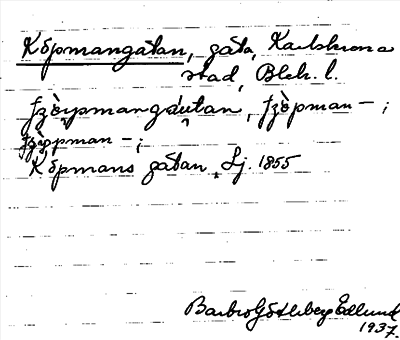 Köpmangatan, gata, Karlskrona
stad, Blek. l.
fzèypmangáutan, fzèpman – ;
fzèppman – ;
Köpmans gatan, Lj. 1855
Barbro Götleberg Edlund
1937.